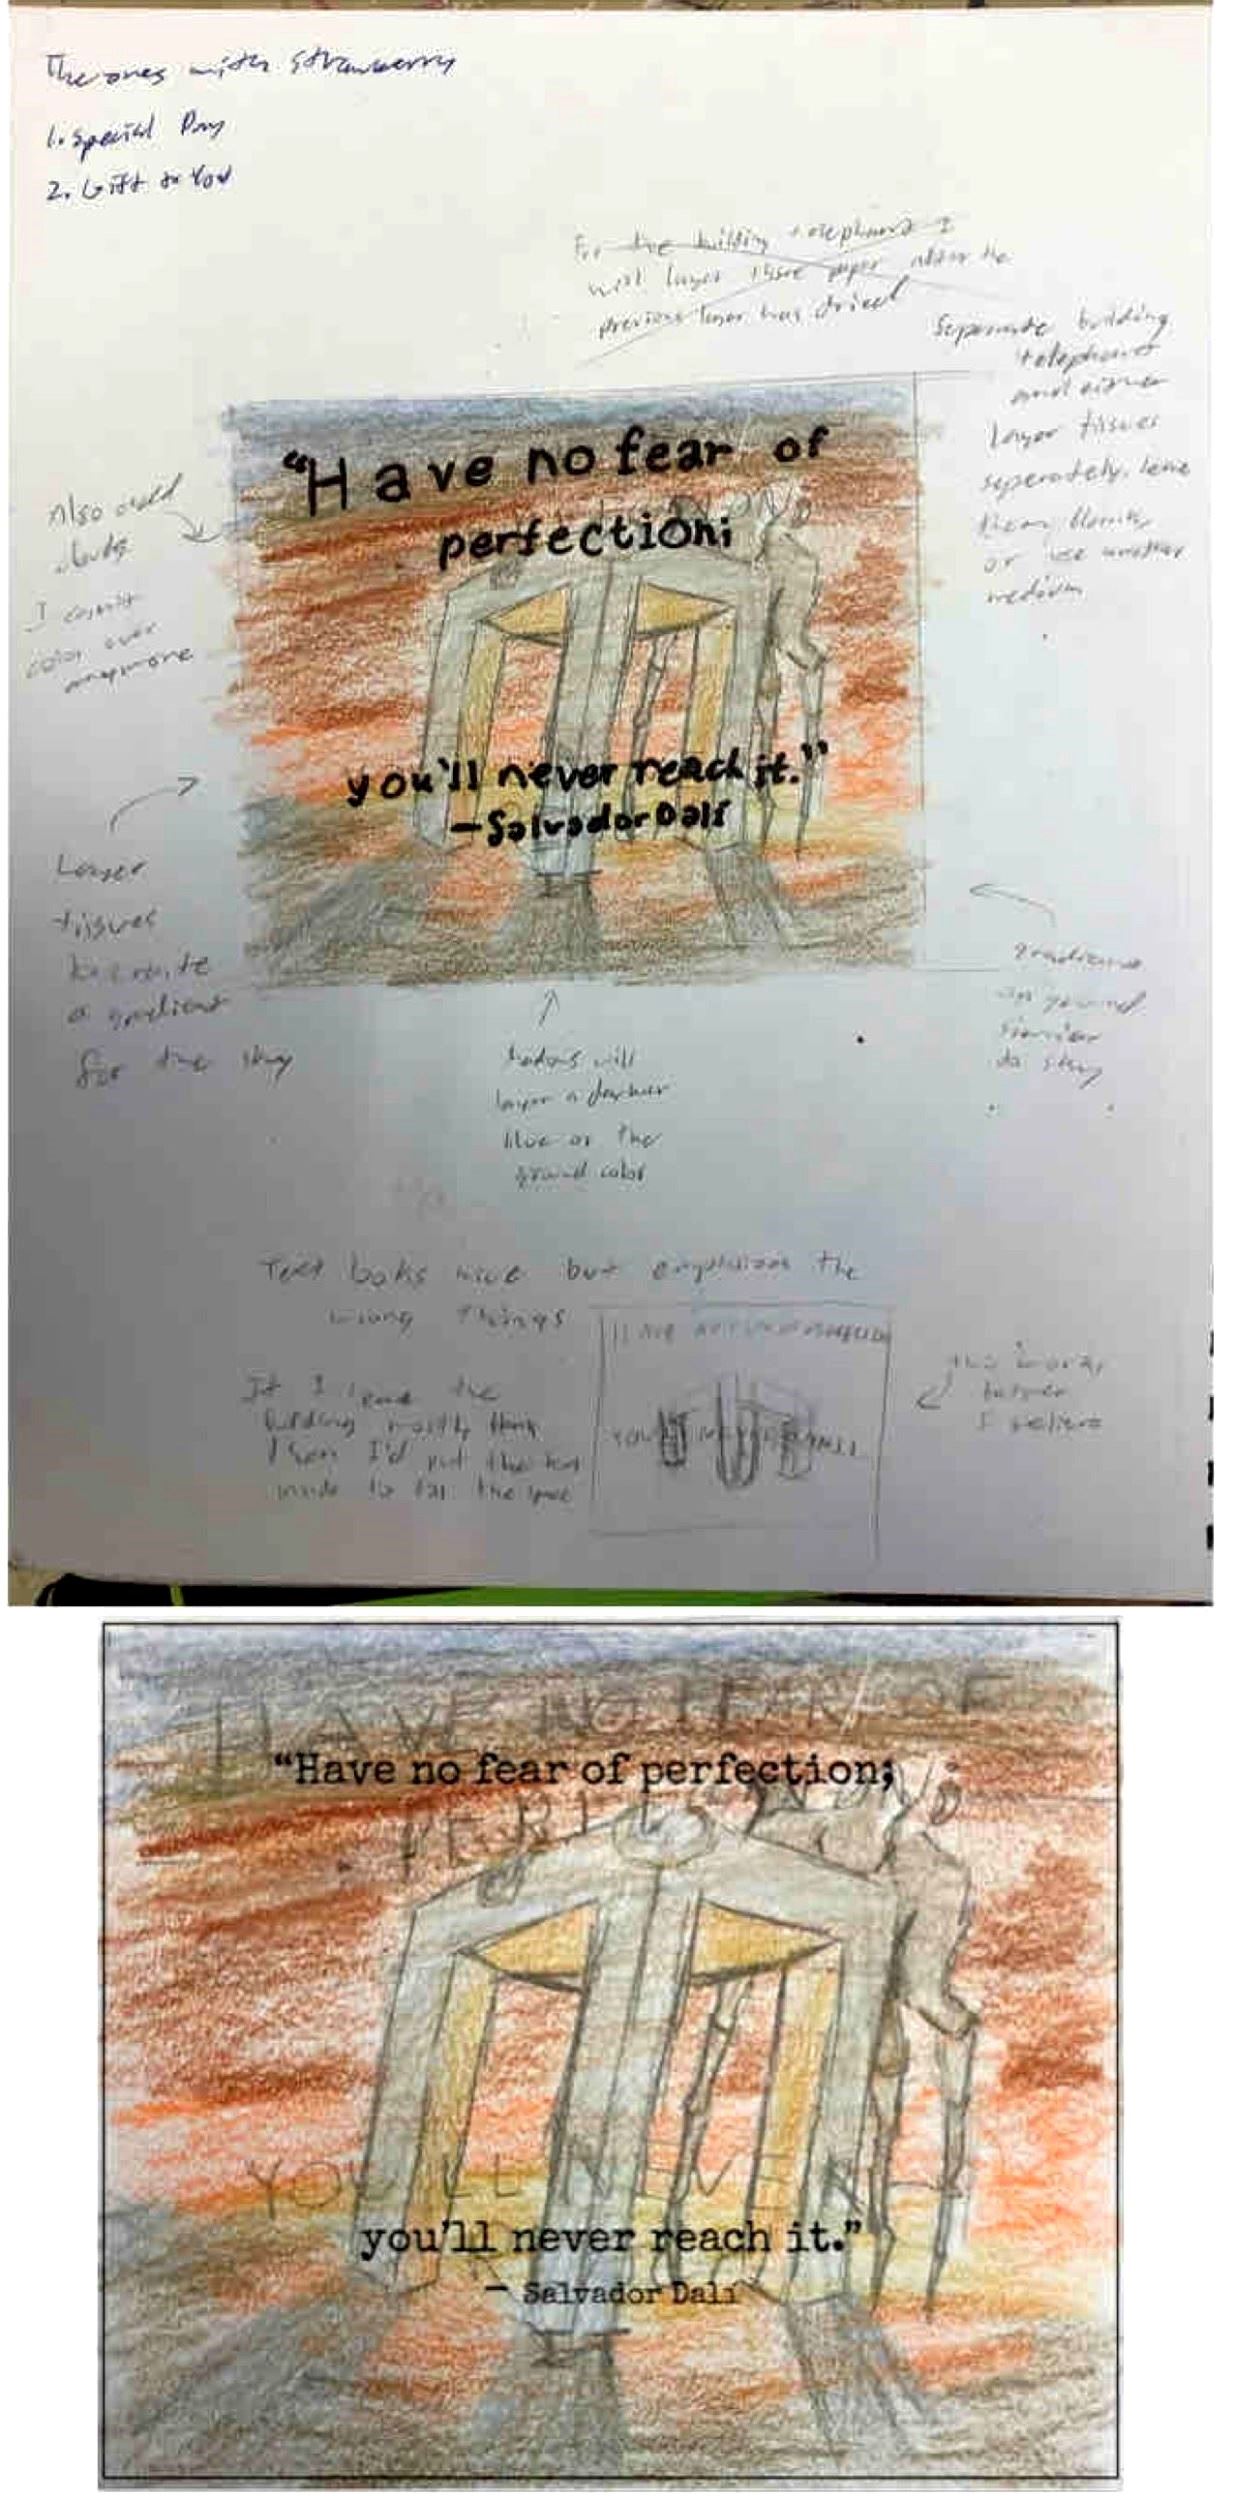 The ones with strawberry
1. Special Day
2. Gift to You
For the building + elephant I
will layer tissue paper after the
previous layer has dried
Seperate building
+ elephant
and either
layer tissues
seperately, leave
them blank,
or use another
medium
Also add
clouds
I
color over
anymore
"Have no fear of
perfection;
you'll never reach it."
— Salvador Dalí
Layer
tissues
to create
a gradient
for the sky
gradient
on ground
similar
to sky
shadows will
layer a darker
blue or the
ground color
Text looks nice but emphasizes the
wrong things
If I leave the
building mostly blank
then I'd put the text
inside to fill the space
HAVE NO FEAR OF PERFECTION
YOU'LL NEVER
this works
better
I believe
HAVE NO FEAR OF
"Have no fear of perfection;
YOU'LL NEVER
you'll never reach it."
— Salvador Dalí